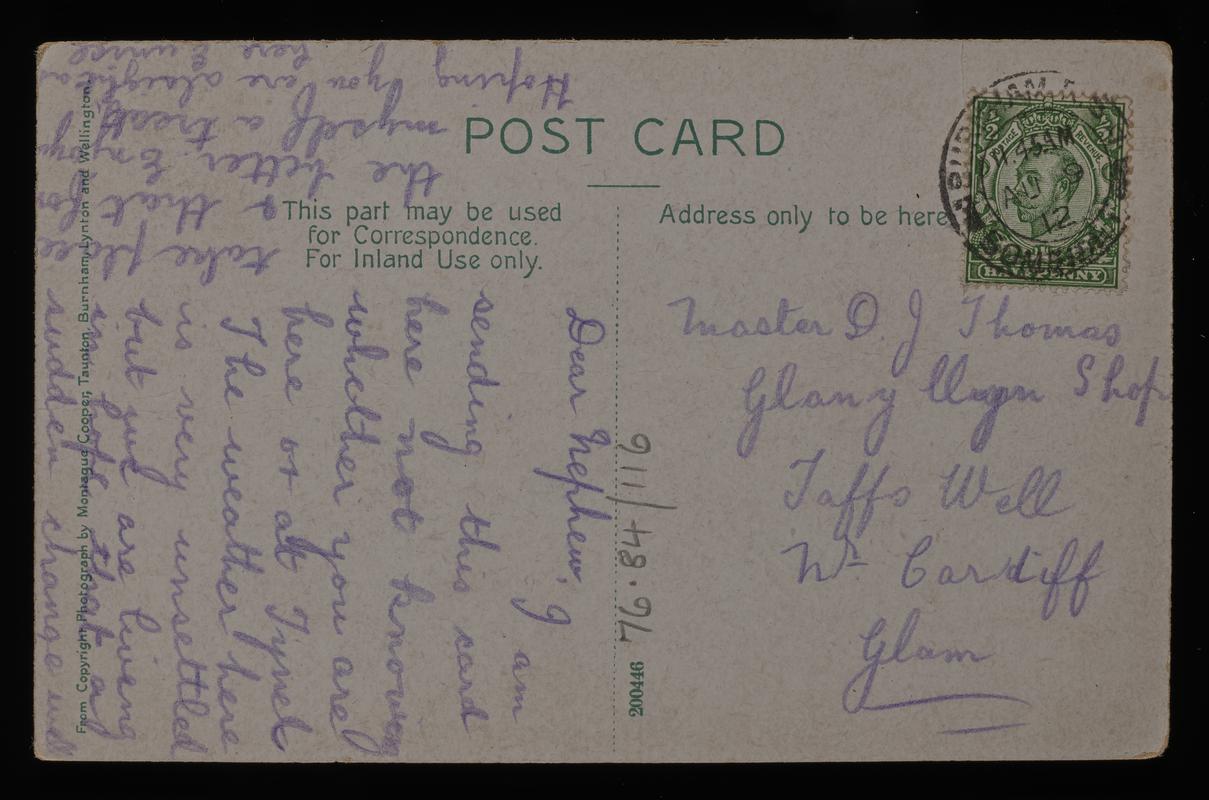 POST CARD
This part may be used
for Correspondence.
For Inland Use only.
Address only to be here
7.45AM
12
SOMERSET
HALFPENNY
Master D. J Thomas
Glan y Llyn Shop
Taffs Well
Nr Cardiff
Glam
Dear Nephew, I am
sending this card
here not knowing
whether you are
here or at
The weather here
is very unsettled
but just are living
in hope that a
sudden change will
take place
& that for
the better. Enjoy
myself a treat,
Hoping you are alright
here
From Copyright Photograph by Montague Cooper, Taunton, Burnham, Lynton and Wellington.
200446